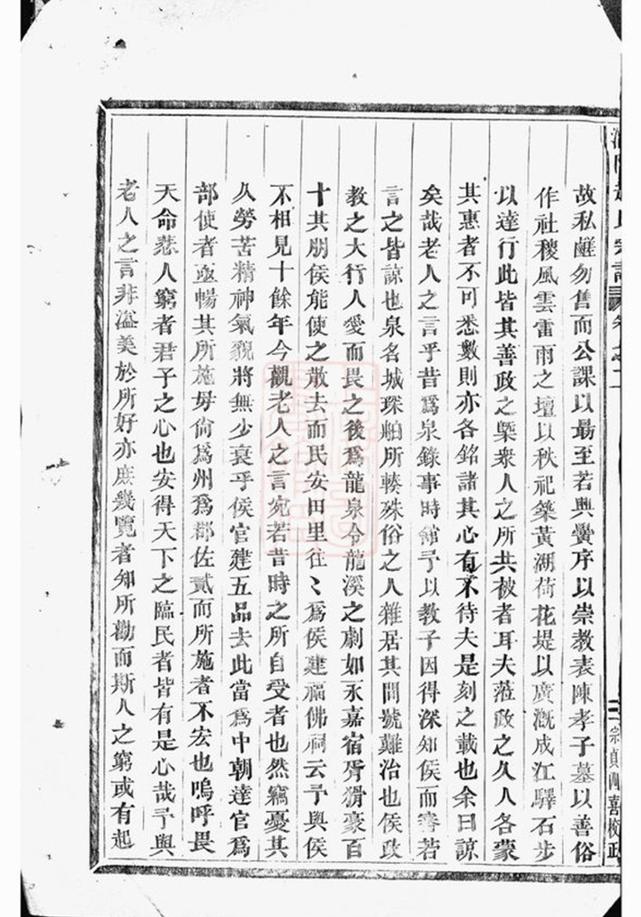 故私鹺勿售而公課以最至若興黌序以崇教表陳孝子墓以善俗
作社稷風雲雷雨之壇以秩祀築黃湖荷花堤以廣溉成江驛石步
以達行此皆其善政之槩衆人之所共被者耳夫蒞政之久人各蒙
其惠者不可悉數則亦各銘諸其心有不待夫是刻之載也余曰諒
矣哉老人之言乎昔爲泉錄事時館予以教子因得深知侯而審若
言之皆諒也泉名城琛舶所輳殊俗之人雜居其間號難治也侯政
教之大行人愛而畏之後爲龍泉令龍溪之劇如永嘉宿胥猾豪百
十其朋侯能使之散去而民安田里往〻爲侯建福佛祠云予與侯
不相見十餘年今觀老人之言宛若昔時之所自受者也然竊憂其
久勞苦精神氣貌將無少衰乎侯官建五品去此當爲中朝達官爲
部使者亟暢其所施毋尙爲州爲郡佐貳而所施者不宏也嗚呼畏
天命悲人窮者君子之心也安得天下之臨民者皆有是心哉予與
老人之言非溢美於所好亦庶幾覽者知所勸而斯人之窮或有起
氏宗譜 卷之二